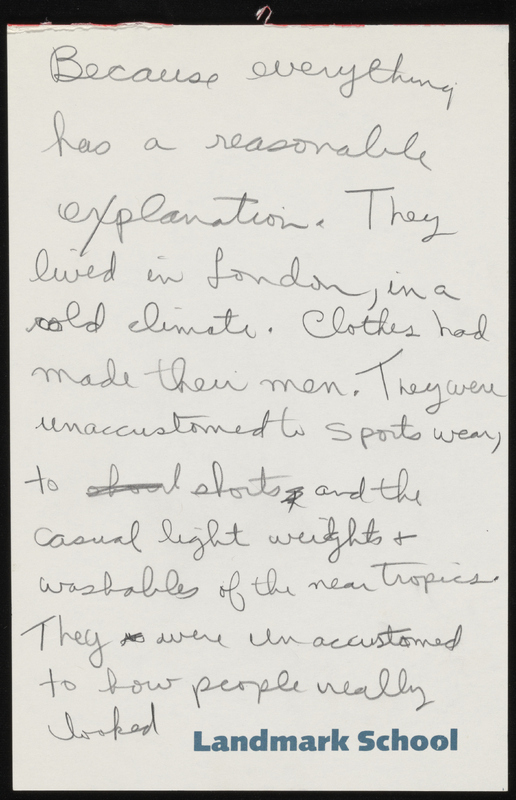 Because everything
has a reasonable
explanation. They
lived in London, in a
cold climate. Clothes had
made their men. They were
unaccustomed to sports wear,
to shorts, and the
casual light weights +
washables of the near tropics.
They were unaccustomed
to how people really
looked
Landmark School